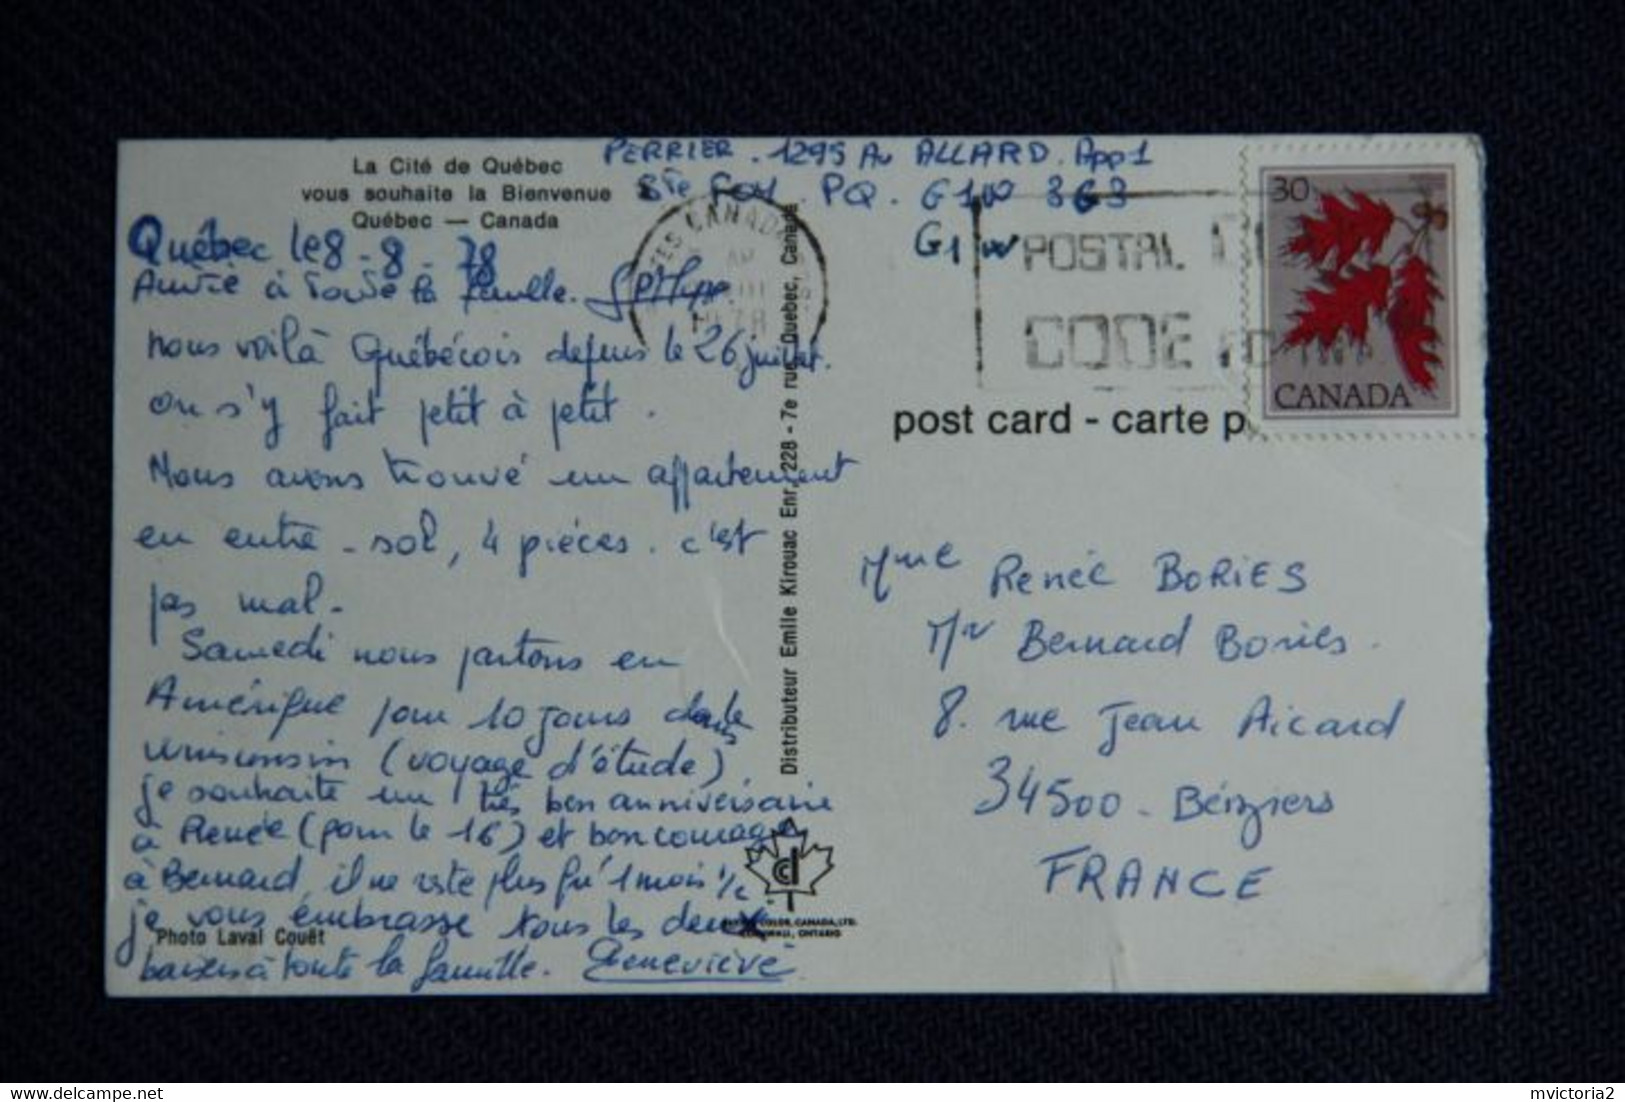 La Cité de Québec
vous souhaite la Bienvenue
Québec — Canada
PERRIER. 1295 Av ALLARD. App1
Ste Foy. PQ. G1W 3G3
G1W
Québec le 8-8-78
Amitié à toute la famille.
nous voilà Québécois depuis le 26 juillet.
on s'y fait petit à petit.
Nous avons trouvé un appartement
en entre-sol, 4 pièces. c'est
pas mal-
Samedi nous partons en
Amérique pour 10 jours dans le
wisconsin (voyage d'étude).
je souhaite un très bon anniversaire
à Renée (pour le 16) et bon courage
à Bernard, il ne reste plus qu'1 mois 1/2
je vous embrasse tous les deux.
baisers à toute la famille. Geneviève
Photo Laval Couët
Distributeur Emile Kirouac Enr, 228 - 7e rue, Québec, Canada.
CANADA
1978
POSTAL
CODE
30
CANADA
post card - carte p
Mme Renée BORIES
Mr Bernard Bories.
8. rue Jean Aicard
34500 - Béziers
FRANCE
COLOR, CANADA, LTD.
CORNWALL, ONTARIO
mvictoria2